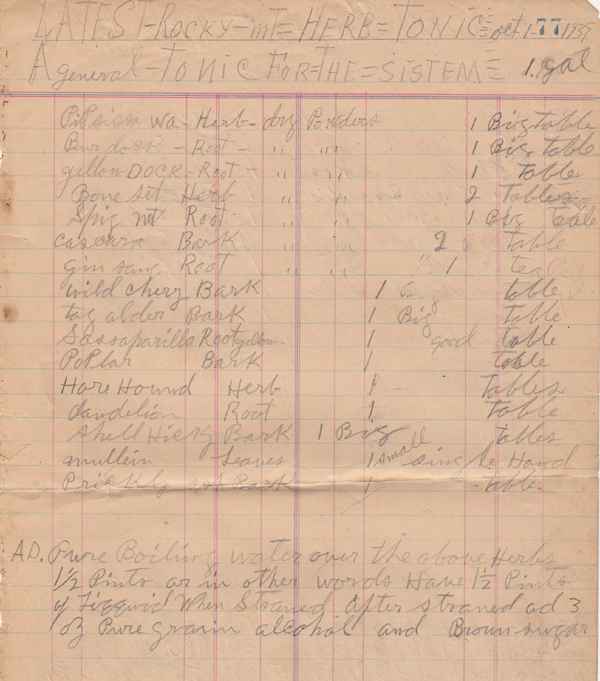 LATEST-ROCKY-mt= HERB=TONIC= oct 1-77 1937
A general-TONIC FOR=THE=SISTEM= 1. gal
Wa-Herb- dry Powders 1 Big table
Burdoss- Root- " " 1 Big. table
yellow DOCK-Root- " " 1 table
Bone set Herb " " 2 Tables
Spig nt Root " " 1 Big table
cascara Bark " " 2 table
gin sang Root " " " 1 tea
wild chery Bark 1 table
tag alder Bark 1 Big table
Sassaparilla Root 1 good table
PoPlar Bark 1 table
Hore Hound Herb 1 Tables
dandelion Root 1 Table
shell Hicry Bark 1 Big tables
mullein Leaves 1 small single Hand
Prickily Bark 1 table
AD. Pure Boiling water over the above Herbs
1½ Pints or in other words Have 1½ Pints
of Liqquid When Strained after straned ad 3
oz Pure grain alcohol and Brown-sugar